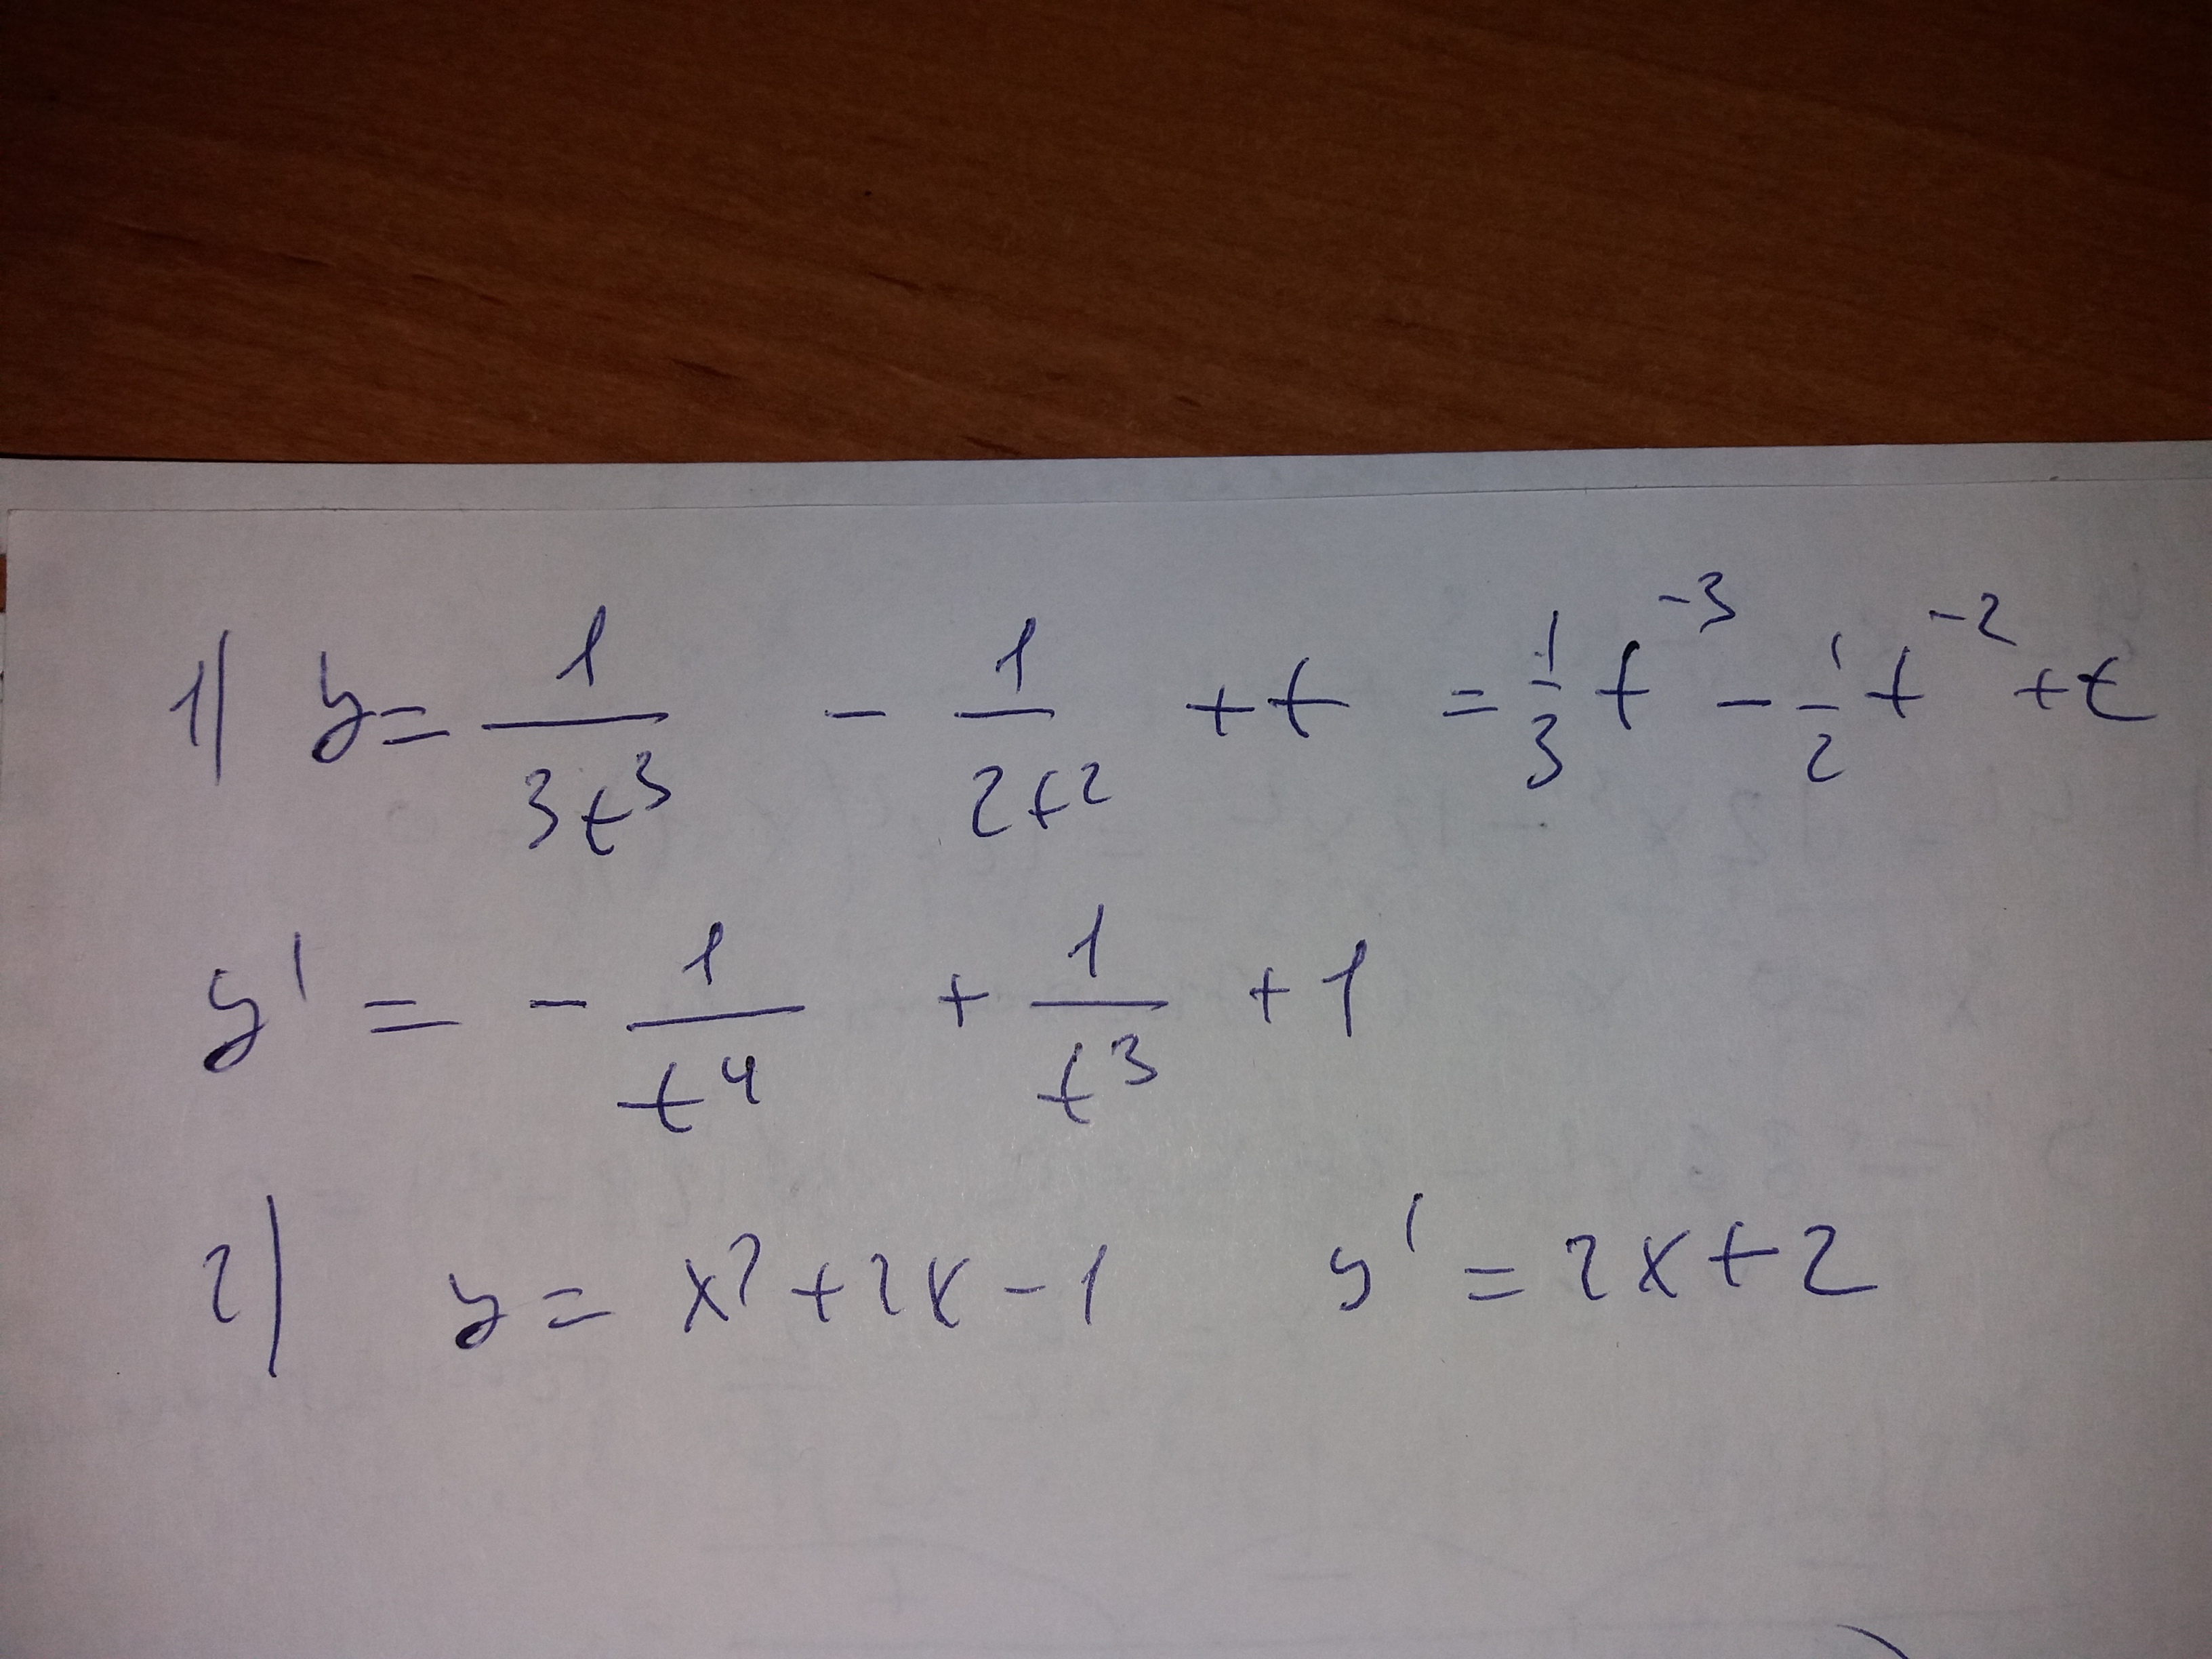 1) y = 1/(3t³) - 1/(2t²) + t = 1/3 t⁻³ - 1/2 t⁻² + t
y' = - 1/t⁴ + 1/t³ + 1
2) y = x² + 2x - 1 y' = 2x + 2